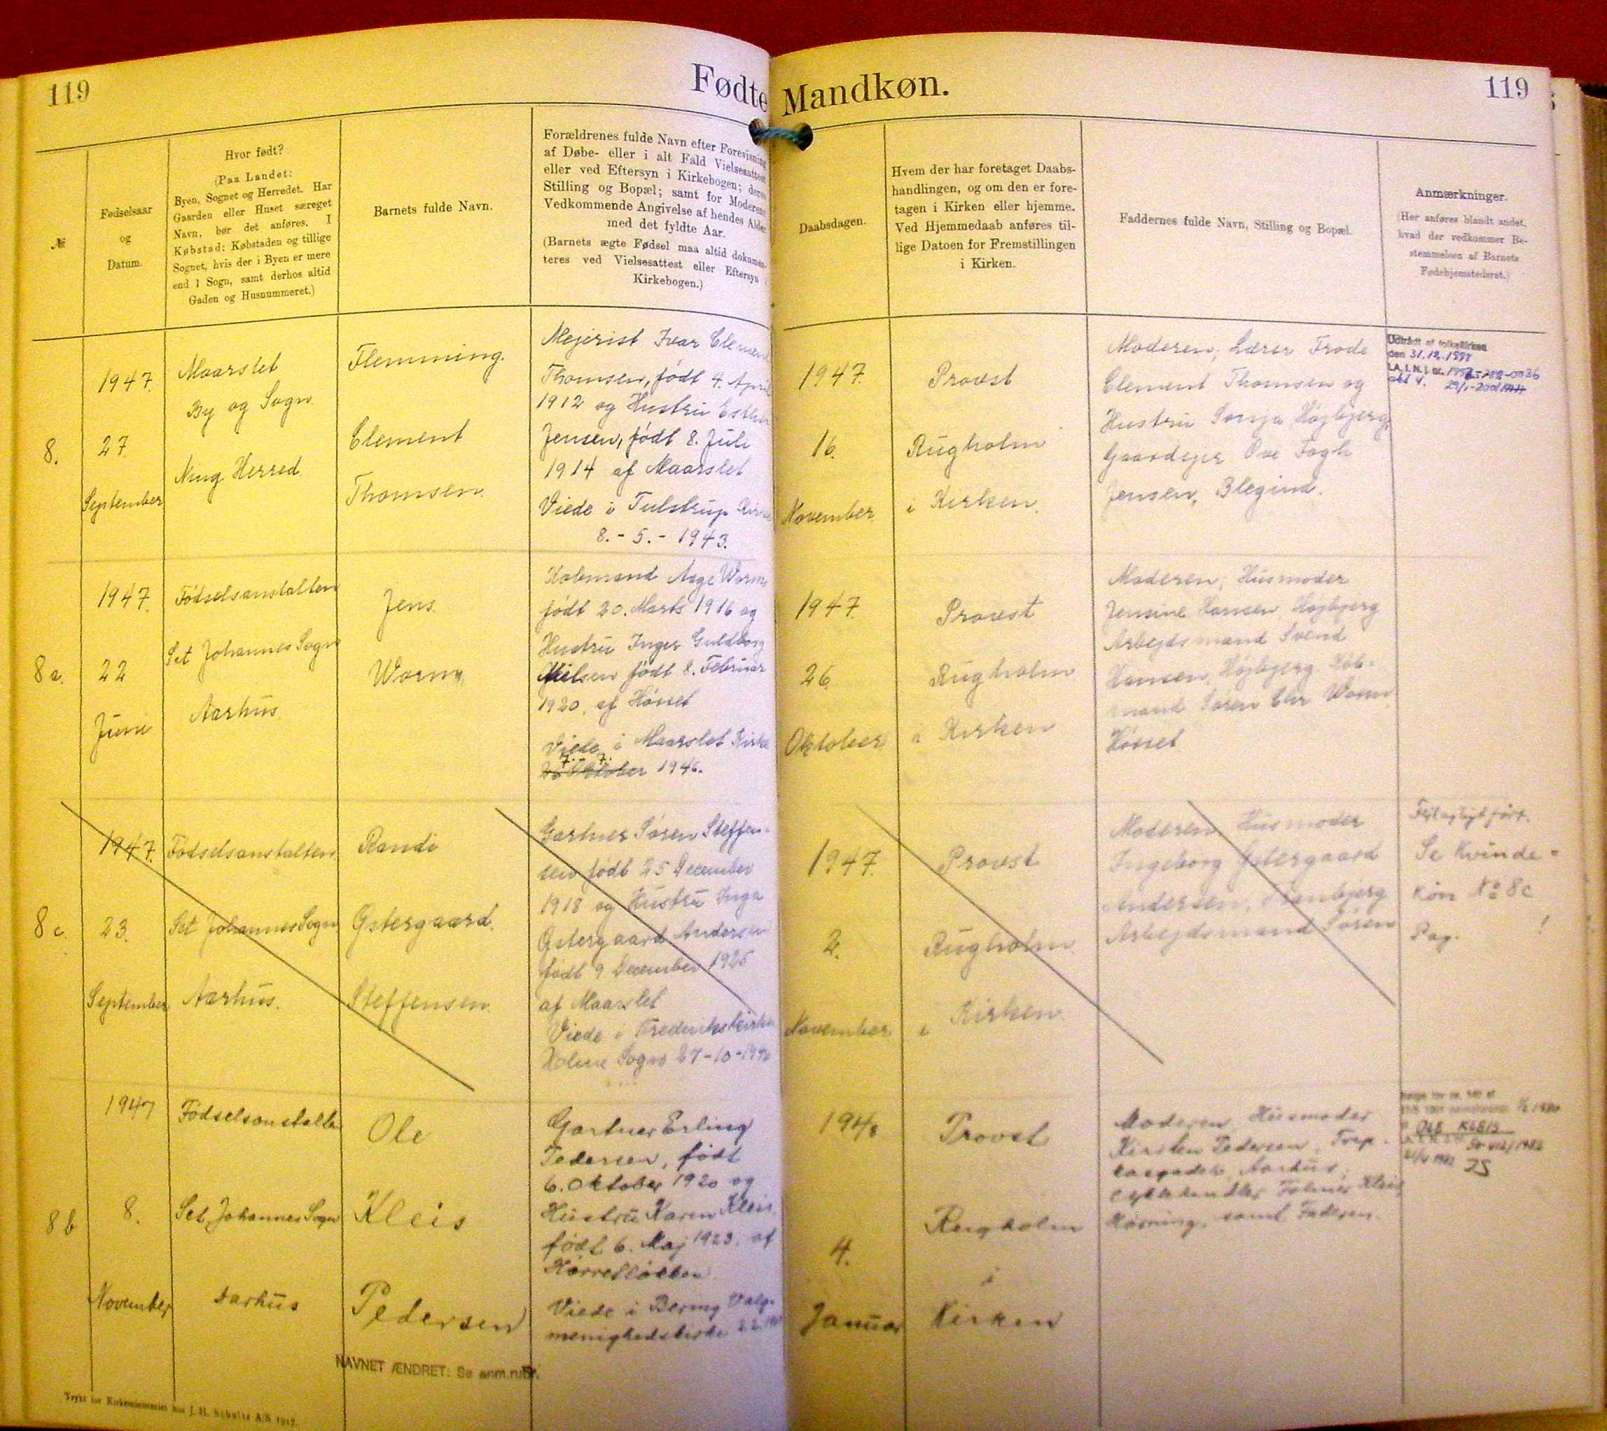 119
Fødte Mandkøn.
119
№
Fødselsaar
og
Datum.
Hvor født?
(Paa Landet:
Byen, Sognet og Herredet. Har
Gaarden eller Huset særeget
Navn, bør det anføres. I
Købstad: Købstaden og tillige
Sognet, hvis der i Byen er mere
end 1 Sogn, samt derhos altid
Gaden og Husnummeret.)
Barnets fulde Navn.
Forældrenes fulde Navn efter Forevisning
af Døbe- eller i alt Fald Vielsesattest
eller ved Eftersyn i Kirkebogen; deres
Stilling og Bopæl; samt for Moderens
Vedkommende Angivelse af hendes Alder
med det fyldte Aar.
(Barnets ægte Fødsel maa altid dokumen-
teres ved Vielsesattest eller Eftersyn i
Kirkebogen.)
Daabsdagen.
Hvem der har foretaget Daabs-
handlingen, og om den er fore-
tagen i Kirken eller hjemme.
Ved Hjemmedaab anføres til-
lige Datoen for Fremstillingen
i Kirken.
Faddernes fulde Navn, Stilling og Bopæl.
Anmærkninger.
(Her anføres blandt andet,
hvad der vedkommer Be-
stemmelsen af Barnets
Fødehjemstedsret.)
8.
1947.
27
September
Maarslet
By og Sogn
Ning Herred
Flemming
Clement
Thomsen
Mejerist Ivar Clement
Thomsen, født 4. April
1912 og Hustru Esther
Jensen, født 8. Juli
1914 af Maarslet
Viede i Tulstrup Kirke
8. - 5. - 1943.
1947.
16.
November
Provst
Rugholm
i Kirken.
Moderen, Lærer Frode
Clement Thomsen og
Hustru Sonja, Højbjerg,
Gaardejer Ove Fogh
Jensen, Blegind.
Udtrådt af folkekirken
den 31.12.1998
8a.
1947.
22
Juni
Fødselsanstalten
Sct Johannes Sogn
Aarhus
Jens
Worm
Kolmand Aage Worm
født 20. Marts 1916 og
Hustru Inger Guldborg
Nielsen født 8. Februar
1920, af Hørret
Viede i Maarslet Kirke
7. - 7.
Oktober 1946.
1947.
26
Oktober
Provst
Rugholm
i Kirken
Moderen, Husmoder
Jensine Hansen, Højbjerg
Arbejdsmand Svend
Hansen, Højbjerg Kol-
mand Søren Chr Worm
Hørret
8c.
1947.
23.
September
Fødselsanstalten
Sct Johannes Sogn
Aarhus.
Randi
Østergaard
Steffensen
Gartner Søren Steffen-
sen født 25 December
1918 og Hustru Inga
Østergaard Andersen
født 9 December 1925
af Maarslet
Viede i Frederikskirken
Holme Sogn 27-10-1946
1947.
2.
November
Provst
Rugholm
i Kirken
Moderen, Husmoder
Ingeborg Østergaard
Andersen,
Arbejdsmand Søren
Fejlagtigt ført.
Se Kvinde-
køn № 8c
Pag.
8b
1947
8.
November
Fødselsanstalten
Sct. Johannes Sogn
Aarhus
Ole
Kleis
Pedersen
Gartner Erling
Pedersen, født
6. Oktober 1920 og
Hustru Karen Kleis,
født 6. Maj 1923, af
Hørretløkken
Viede i Bering Valg-
menighedskirke
1948
4.
Januar
Provst
Rugholm
i
Kirken
Moderen, Husmoder
Kirsten Pedersen,
Aarhus,
Cyklehandler Kleis
Hørning, samt Faderen.
OLE KLEIS
NAVNET ÆNDRET: Se anm.rubr.
Trykt for Kirkeministeriet hos J. H. Schultz A/S 1917.